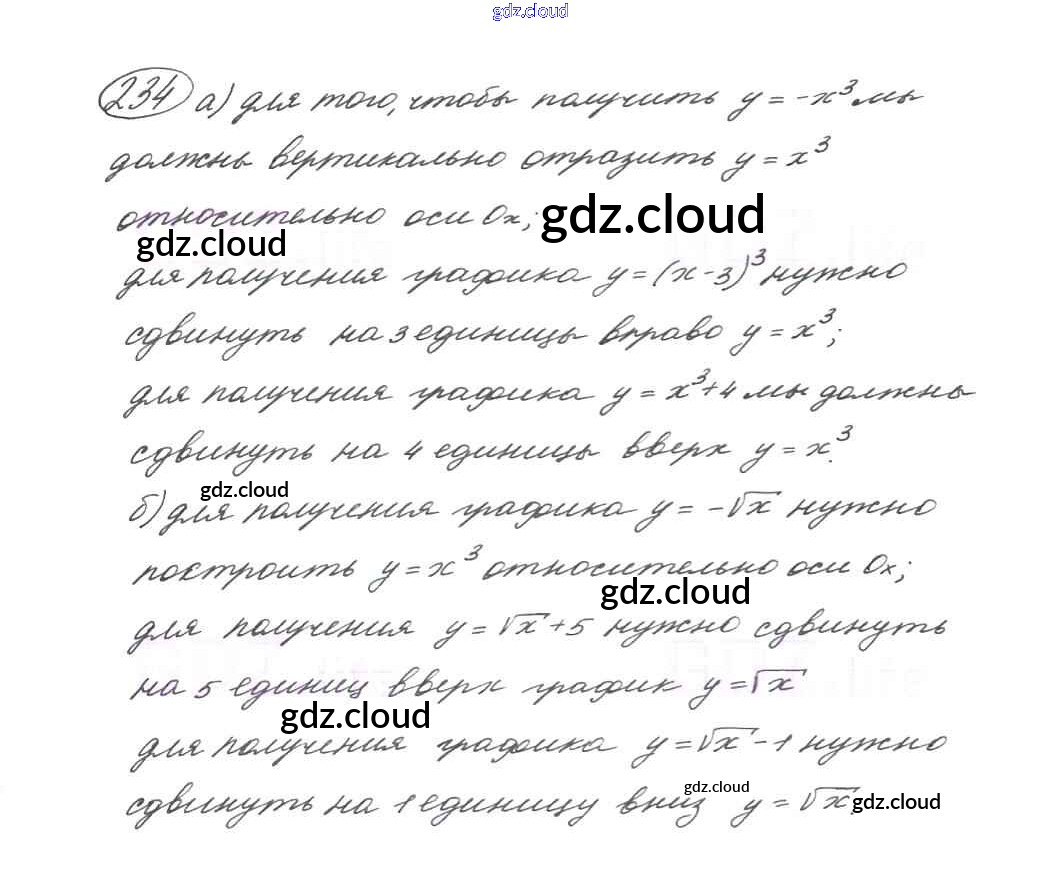 gdz.cloud
234 а) для того, чтобы получить y = -x³ мы
должны вертикально отразить y = x³
относительно оси Ox;
gdz.cloud
gdz.cloud
для получения графика y = (x-3)³ нужно
сдвинуть на 3 единицы вправо y = x³;
для получения графика y = x³+4 мы должны
сдвинуть на 4 единицы вверх y = x³.
gdz.cloud
б) для получения графика y = -√x нужно
построить y = x³ относительно оси Ox;
gdz.cloud
для получения y = √x +5 нужно сдвинуть
на 5 единиц вверх график y = √x
gdz.cloud
для получения графика y = √x -1 нужно
сдвинуть на 1 единицу вниз y = √x.
gdz.cloud
gdz.cloud